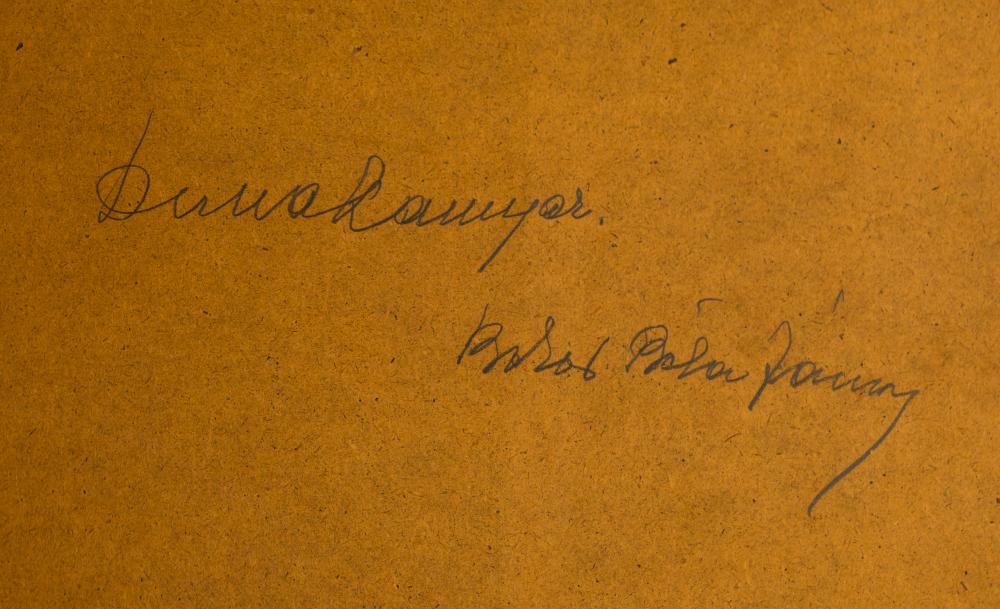 Dunakanyar.
Bokos Béla János